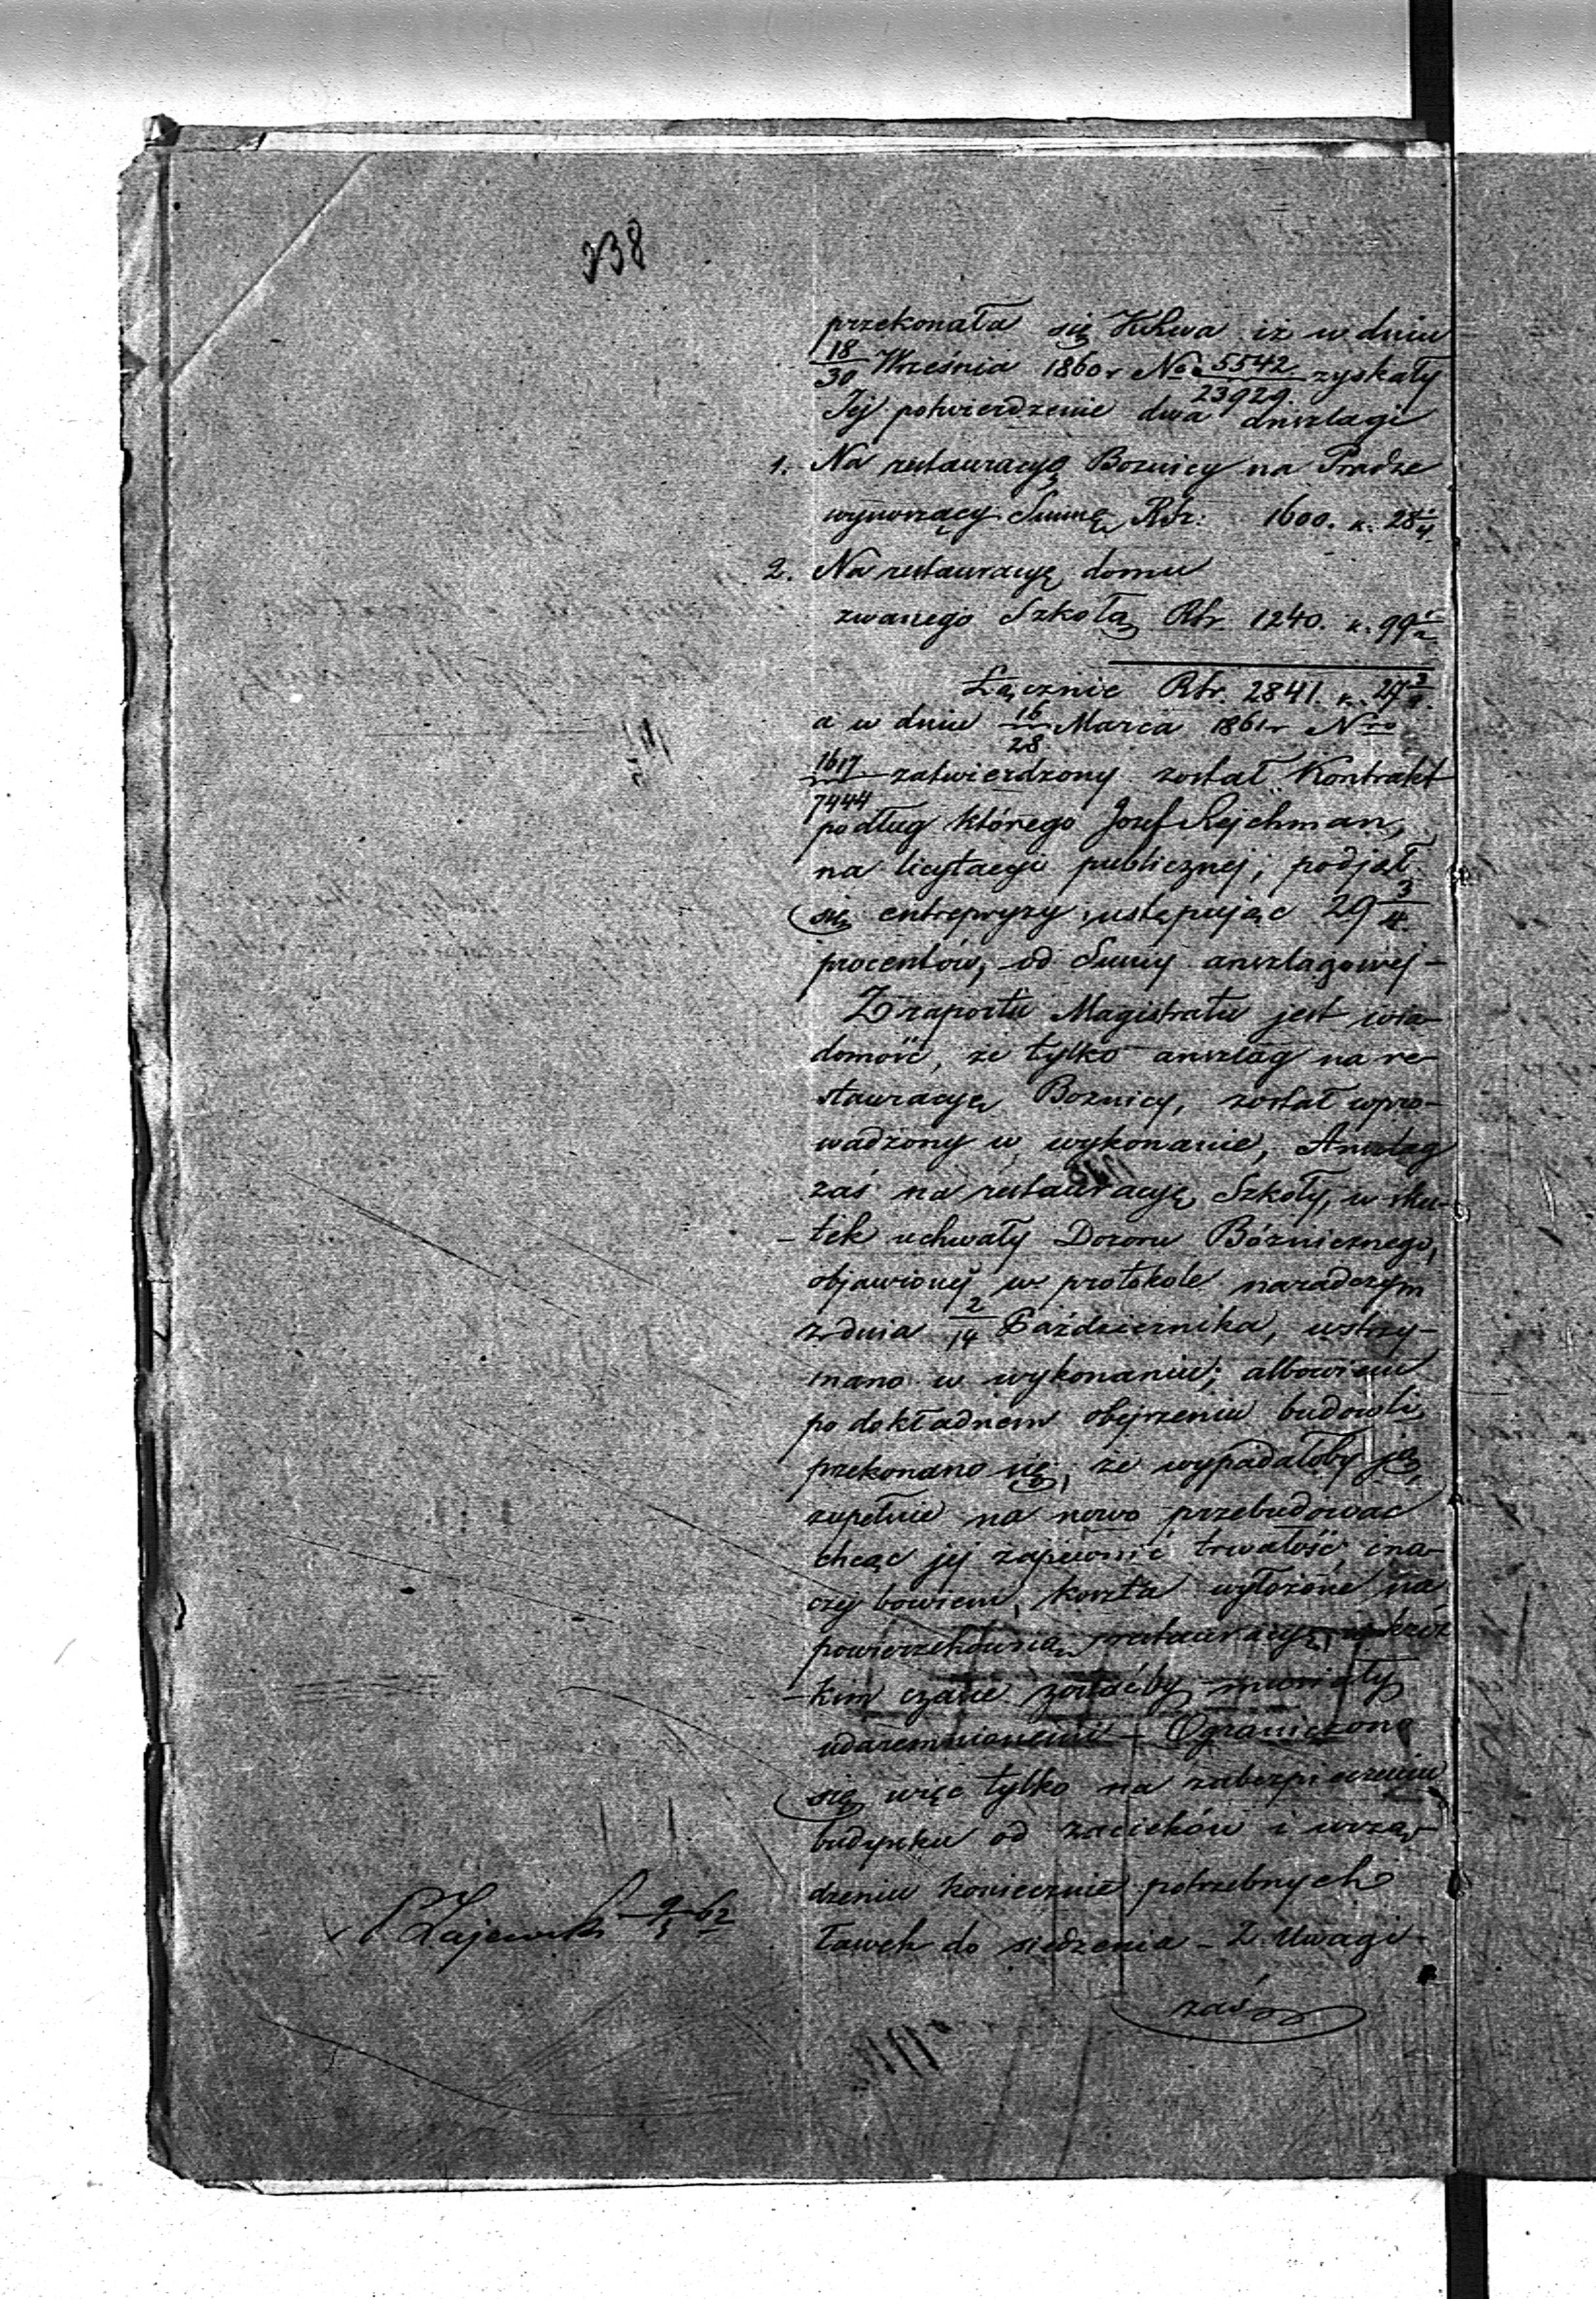 338
przekonała się iż w dniu
18/30 Września 1860 r No 5542/23929 zyskały
Jej potwierdzenie dwa anszlagi
1. Na restauracyę Boznicy na Pradze
wynoszący Summę Rsr: 1600. k. 28 1/4.
2. Na restauracyę domu
zwanego Szkołą Rsr. 1240. k. 99 1/2
Łącznie Rsr. 2841. k. 27 3/4.
a w dniu 16/28 Marca 1861 r Nro
1617/7444 zatwierdzony został Kontrakt
podług którego Josef Rejchman,
na licytacyi publicznej, podjął
się entrepryzy, ustępując 29 3/4
procentów, od Summy anszlagowej –
Z raportu Magistratu jest wia-
domość, że tylko anszlag na re-
stauracyę Boznicy, został wpro-
wadzony w wykonanie, Anszlag
zaś na restauracyę Szkoły, w sku-
-tek uchwały Dozoru Bóżnicznego,
objawionej w protokole naradczym
z dnia 2/14 Października, wstrzy-
mano w wykonaniu; albowiem
po dokładnem obejrzeniu budowli,
przekonano się, że wypadałoby ją
zupełnie na nowo przebudować
chcąc jej zapewnić trwałość, ina-
czej bowiem, koszta wyłożone na
powierzchowną restauracyę, w krót
-kim czasie zostaćby musiały
udaremnionemi – Ograniczono
się więc tylko na zabezpieczeniu
budynku od zacieków i urzą-
dzeniu koniecznie potrzebnych
ławek do siedzenia – Z Uwagi
zaś